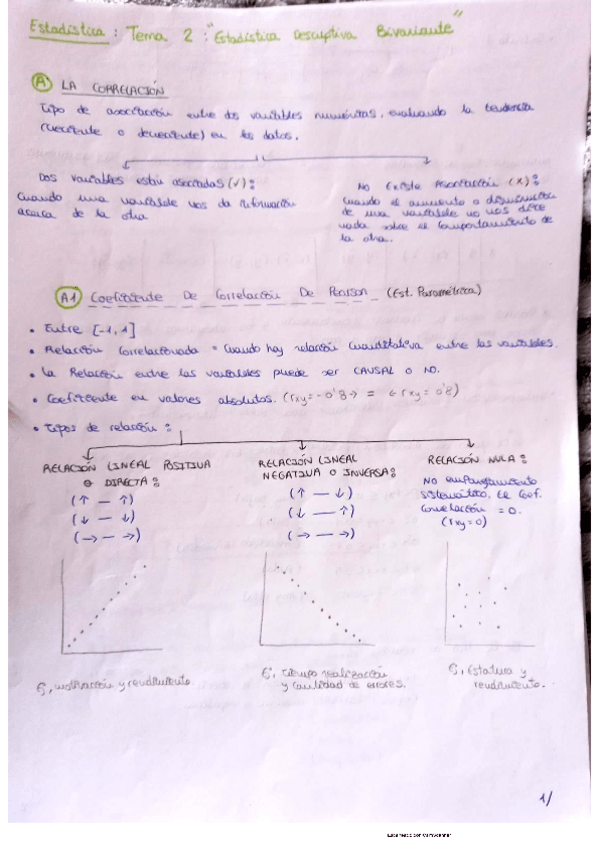 Estadística: Tema 2: "Estadística Descriptiva Bivariante"
A LA CORRELACIÓN
Tipo de asociación entre dos variables numéricas, evaluando la tendencia
(creciente o decreciente) en los datos.
Dos variables están asociadas (✓):
Cuando una variable nos da información
acerca de la otra
No existe Asociación (X):
Cuando el aumento o disminución
de una variable no nos dice
nada sobre el comportamiento de
la otra.
A1 Coeficiente De Correlación De Pearson (Est. Paramétrica)
• Entre [-1, 1]
• Relación Correlacionada = Cuando hay relación cuantitativa entre las variables.
• La Relación entre las variables puede ser CAUSAL o NO.
• Coeficiente en valores absolutos. (rxy = -0'8 → = ← rxy = 0'8)
• Tipos de relación:
RELACIÓN LINEAL POSITIVA
O DIRECTA:
(↑ — ↑)
(↓ — ↓)
(→ — →)
RELACIÓN LINEAL
NEGATIVA O INVERSA:
(↑ — ↓)
(↓ — ↑)
(→ — →)
RELACIÓN NULA:
NO emparejamiento
sistemático. El Coef.
Correlación = 0.
(rxy = 0)
Ej, motivación y rendimiento.
Ej, tiempo realización
y cantidad de errores.
Ej, Estatura y
rendimiento.
1/